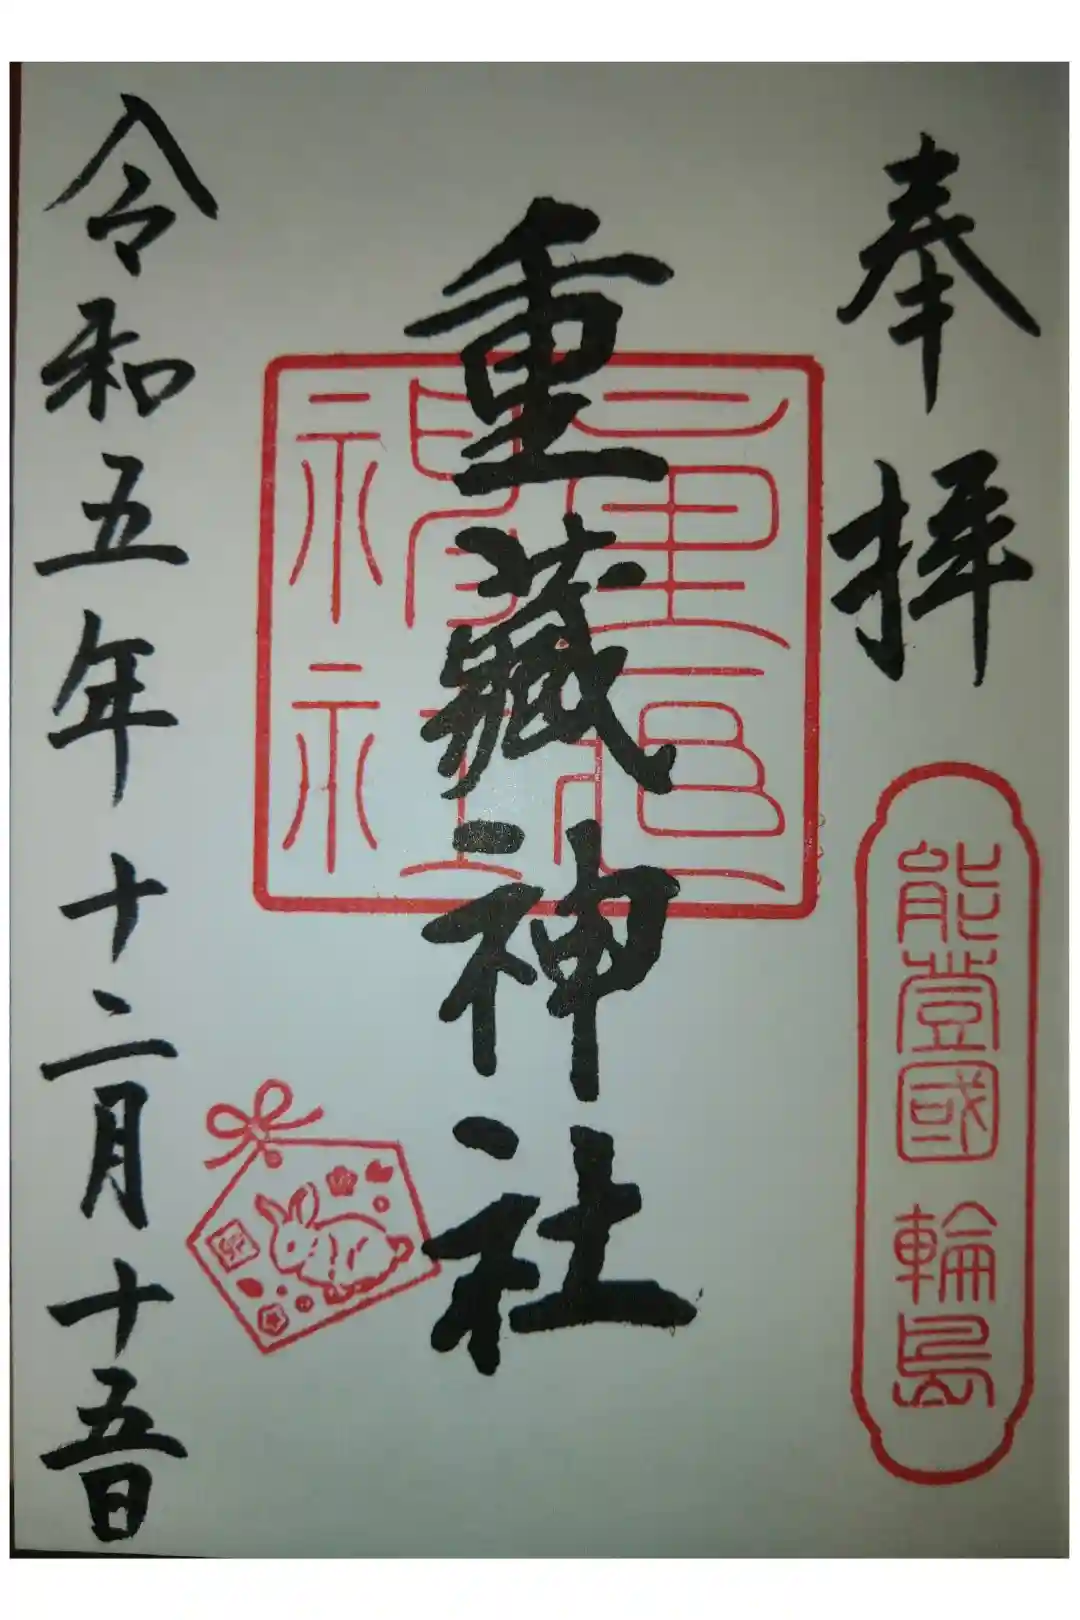 奉拝
能登國 輪島
重蔵神社
重蔵神社
令和五年十二月十五日